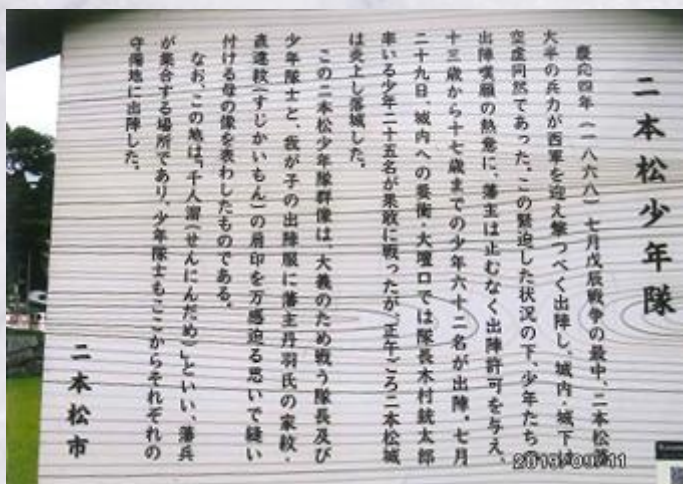 二本松少年隊
慶応四年（一八六八）七月戊辰戦争の最中、二本松藩
大半の兵力が西軍を迎え撃つべく出陣し、城内・城下は
空虚同然であった。この緊迫した状況の下、少年たちの
出陣嘆願の熱意に、藩主は止むなく出陣許可を与え、
十三歳から十七歳までの少年六十二名が出陣。七月
二十九日、城内への要衝・大壇口では隊長木村銃太郎
率いる少年二十五名が果敢に戦ったが、正午ごろ二本松城
は炎上し落城した。
この二本松少年隊群像は、大義のため戦う隊長及び
少年隊士と、我が子の出陣服に藩主丹羽氏の家紋・
直違紋（すじかいもん）の肩印を万感迫る思いで縫い
付ける母の像を表わしたものである。
なお、この地は、「千人溜（せんにんだめ）」といい、藩兵
が集合する場所であり、少年隊士もここからそれぞれの
守備地に出陣した。
二本松市
2019/09/11